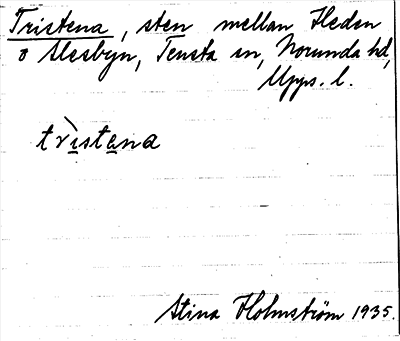 Tristena, sten mellan Heden
o Åesbyn, Tensta sn, Norunda hd,
Upps. l.
trìstena
Stina Holmström 1935.